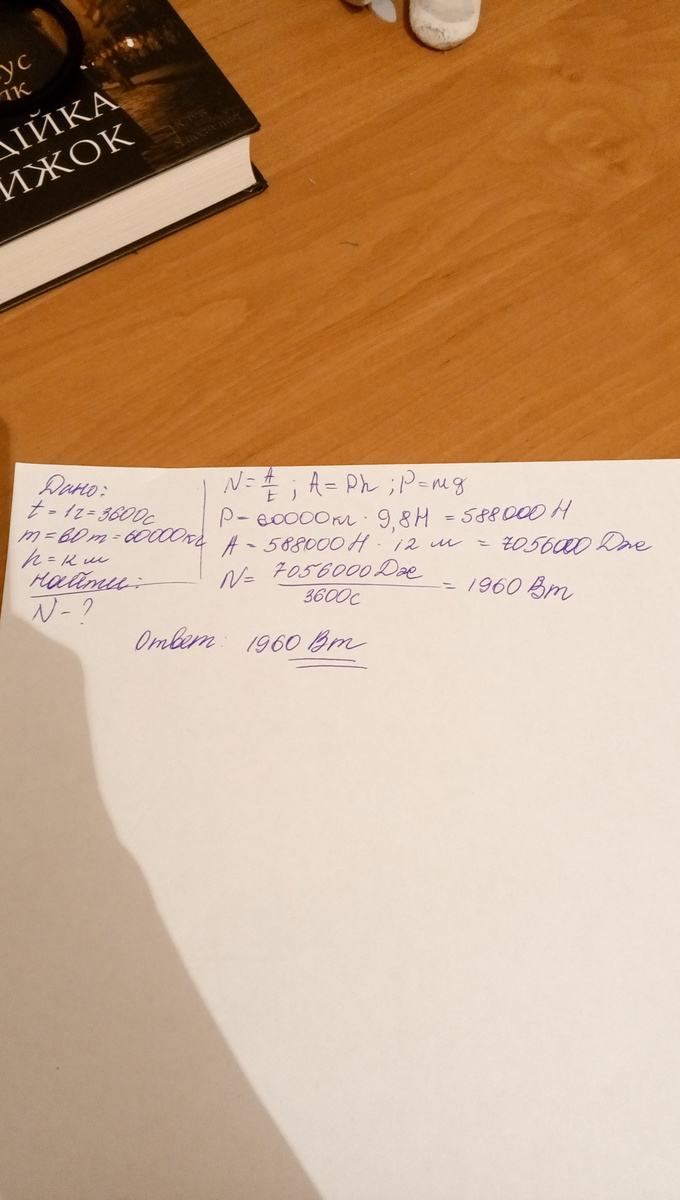 ус
лк
ДІЙКА
ИЖОК
Дано:
t = 1г = 3600с
m = 60т = 60000кг
h = 12 м
Найти:
N - ?
N = A/t ; A = Ph ; P = mg
P = 60000кг · 9,8Н = 588000 Н
A = 588000 Н · 12 м = 7056000 Дж
N = 7056000 Дж / 3600с = 1960 Вт
Ответ: 1960 Вт